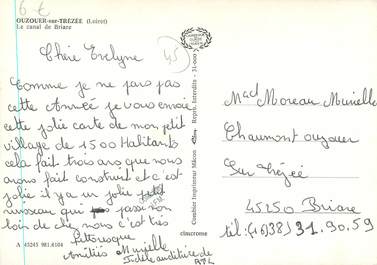 6 €
OUZOUER-sur-TRÉZÉE (Loiret)
Le canal de Briare
45
Chère Evelyne
Comme je ne pars pas
cette Année je vous envoie
cette jolie carte de mon petit
village de 1500 Habitants
cela fait trois ans que nous
avons fait construit et c'est
jolie il y a un jolie petit
ruisseau qui passe non
loin de chez nous c'est très
Pittoresque
Amitiés Murielle
Fidèle auditrice de
A 45245 981.6104
Combier Imprimeur Mâcon
Repro. Interdite - 31-000
cimcrome
Mad Moreau Murielle
Chaumont ouzouer
Sur Trézée
45250 Briare
tél: (16.38) 31.90.59